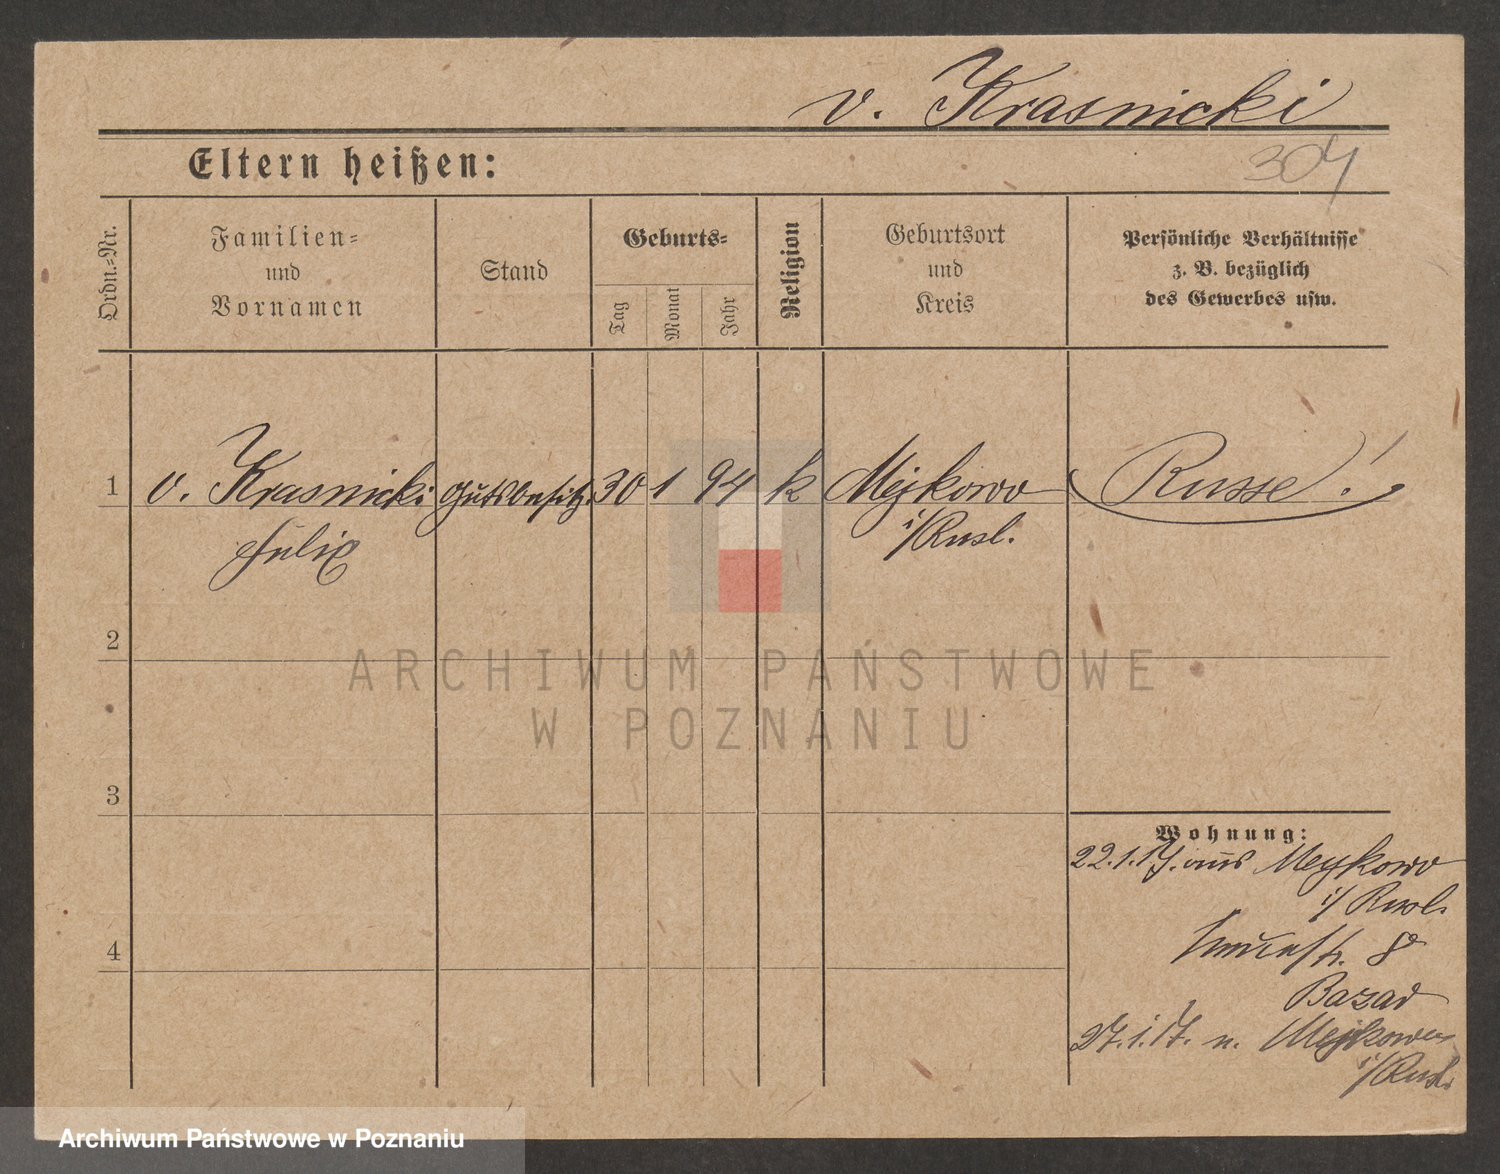 v. Krasnicki
304
Eltern heißen:
Ordn.-Nr.
Familien-
und
Vornamen
Stand
Geburts-
Tag
Monat
Jahr
Religion
Geburtsort
und
Kreis
Persönliche Verhältnisse
z. B. bezüglich
des Gewerbes usw.
1 v. Krasnicki Gutsbesitz. 30 1 94 k Mejkowo Russe!
Julix i/Rusl.
2
ARCHIWUM PAŃSTWOWE
W POZNANIU
3
Wohnung:
22.1.17. aus Mejkowo
i/Rusl.
8
Bazar
27.1.17. n. Mejkowo
i/Rusl.
4
Archiwum Państwowe w Poznaniu